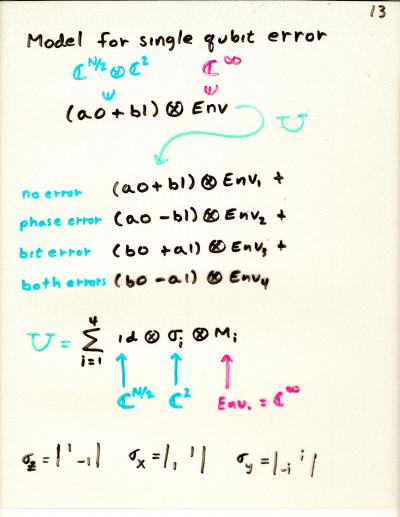 13
Model for single qubit error
ℂ^{N/2} ⊗ ℂ² ℂ^∞
(a0 + b1) ⊗ Env
U
no error (a0 + b1) ⊗ Env₁ +
phase error (a0 - b1) ⊗ Env₂ +
bit error (b0 + a1) ⊗ Env₃ +
both errors (b0 - a1) ⊗ Env₄
U = Σ_{i=1}^{4} id ⊗ σᵢ ⊗ Mᵢ
ℂ^{N/2} ℂ² Env. = ℂ^∞
σ_z = |¹ ₋₁| σ_x = |₁ ¹| σ_y = |₋ᵢ ⁱ|